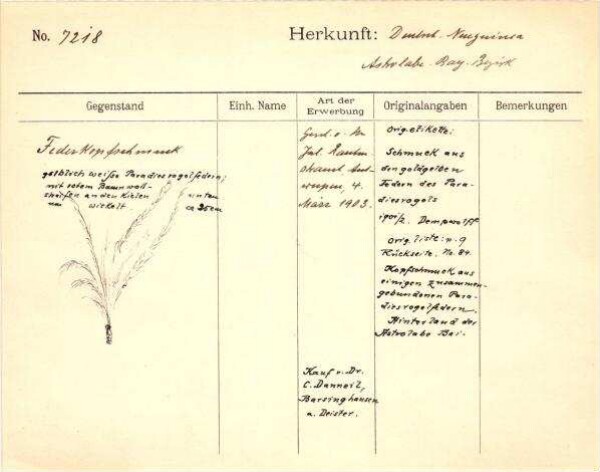 No. 7218
Herkunft: Deutsch. Neuguinea
Astrolabe-Bay-Bezirk
Gegenstand
Einh. Name
Art der Erwerbung
Originalangaben
Bemerkungen
Federkopfschmuck
gelblich weiße Paradiesvogelfedern,
mit rotem Baumwoll-
an den Kielen
um wickelt
unten
ca 35 cm
Gesch. v. Hn
Jul. Rauten-
strauch Ant-
werpen, 4.
März 1903.
Kauf v. Dr.
C. Danneil,
Barsinghausen
a. Deister.
Orig. etikette:
Schmuck aus
den goldgelben
Federn des Para-
diesvogels
Dempwolff
Orig. liste: n. 9
Rückseite. No. 84.
Kopfschmuck aus
einigen zusammen-
gebundenen Para-
diesvogelfedern.
Hinterland der
Astrolabe Bai.